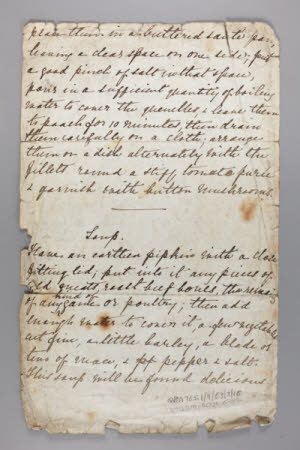 place them in a buttered sauté pan,
leaving a clear space on one side; put
a good pinch of salt in that space,
pour in a sufficient quantity of boiling
water to cover the quenelles & leave them
to poach for 10 minutes, then drain
them carefully on a cloth; arrange
them on a dish alternately with the
fillets round a stiff tomato purée
& garnish with button mushrooms.
Soup.
Have an earthen pipkin with a close
fitting lid; put into it any pieces of
cold roast beef bones, the remains
of any kind game or poultry; then add
enough water to cover it, a few vegetables
cut fine, a little barley, a blade or
two of mace, & pepper & salt.
This soup will be found delicious.